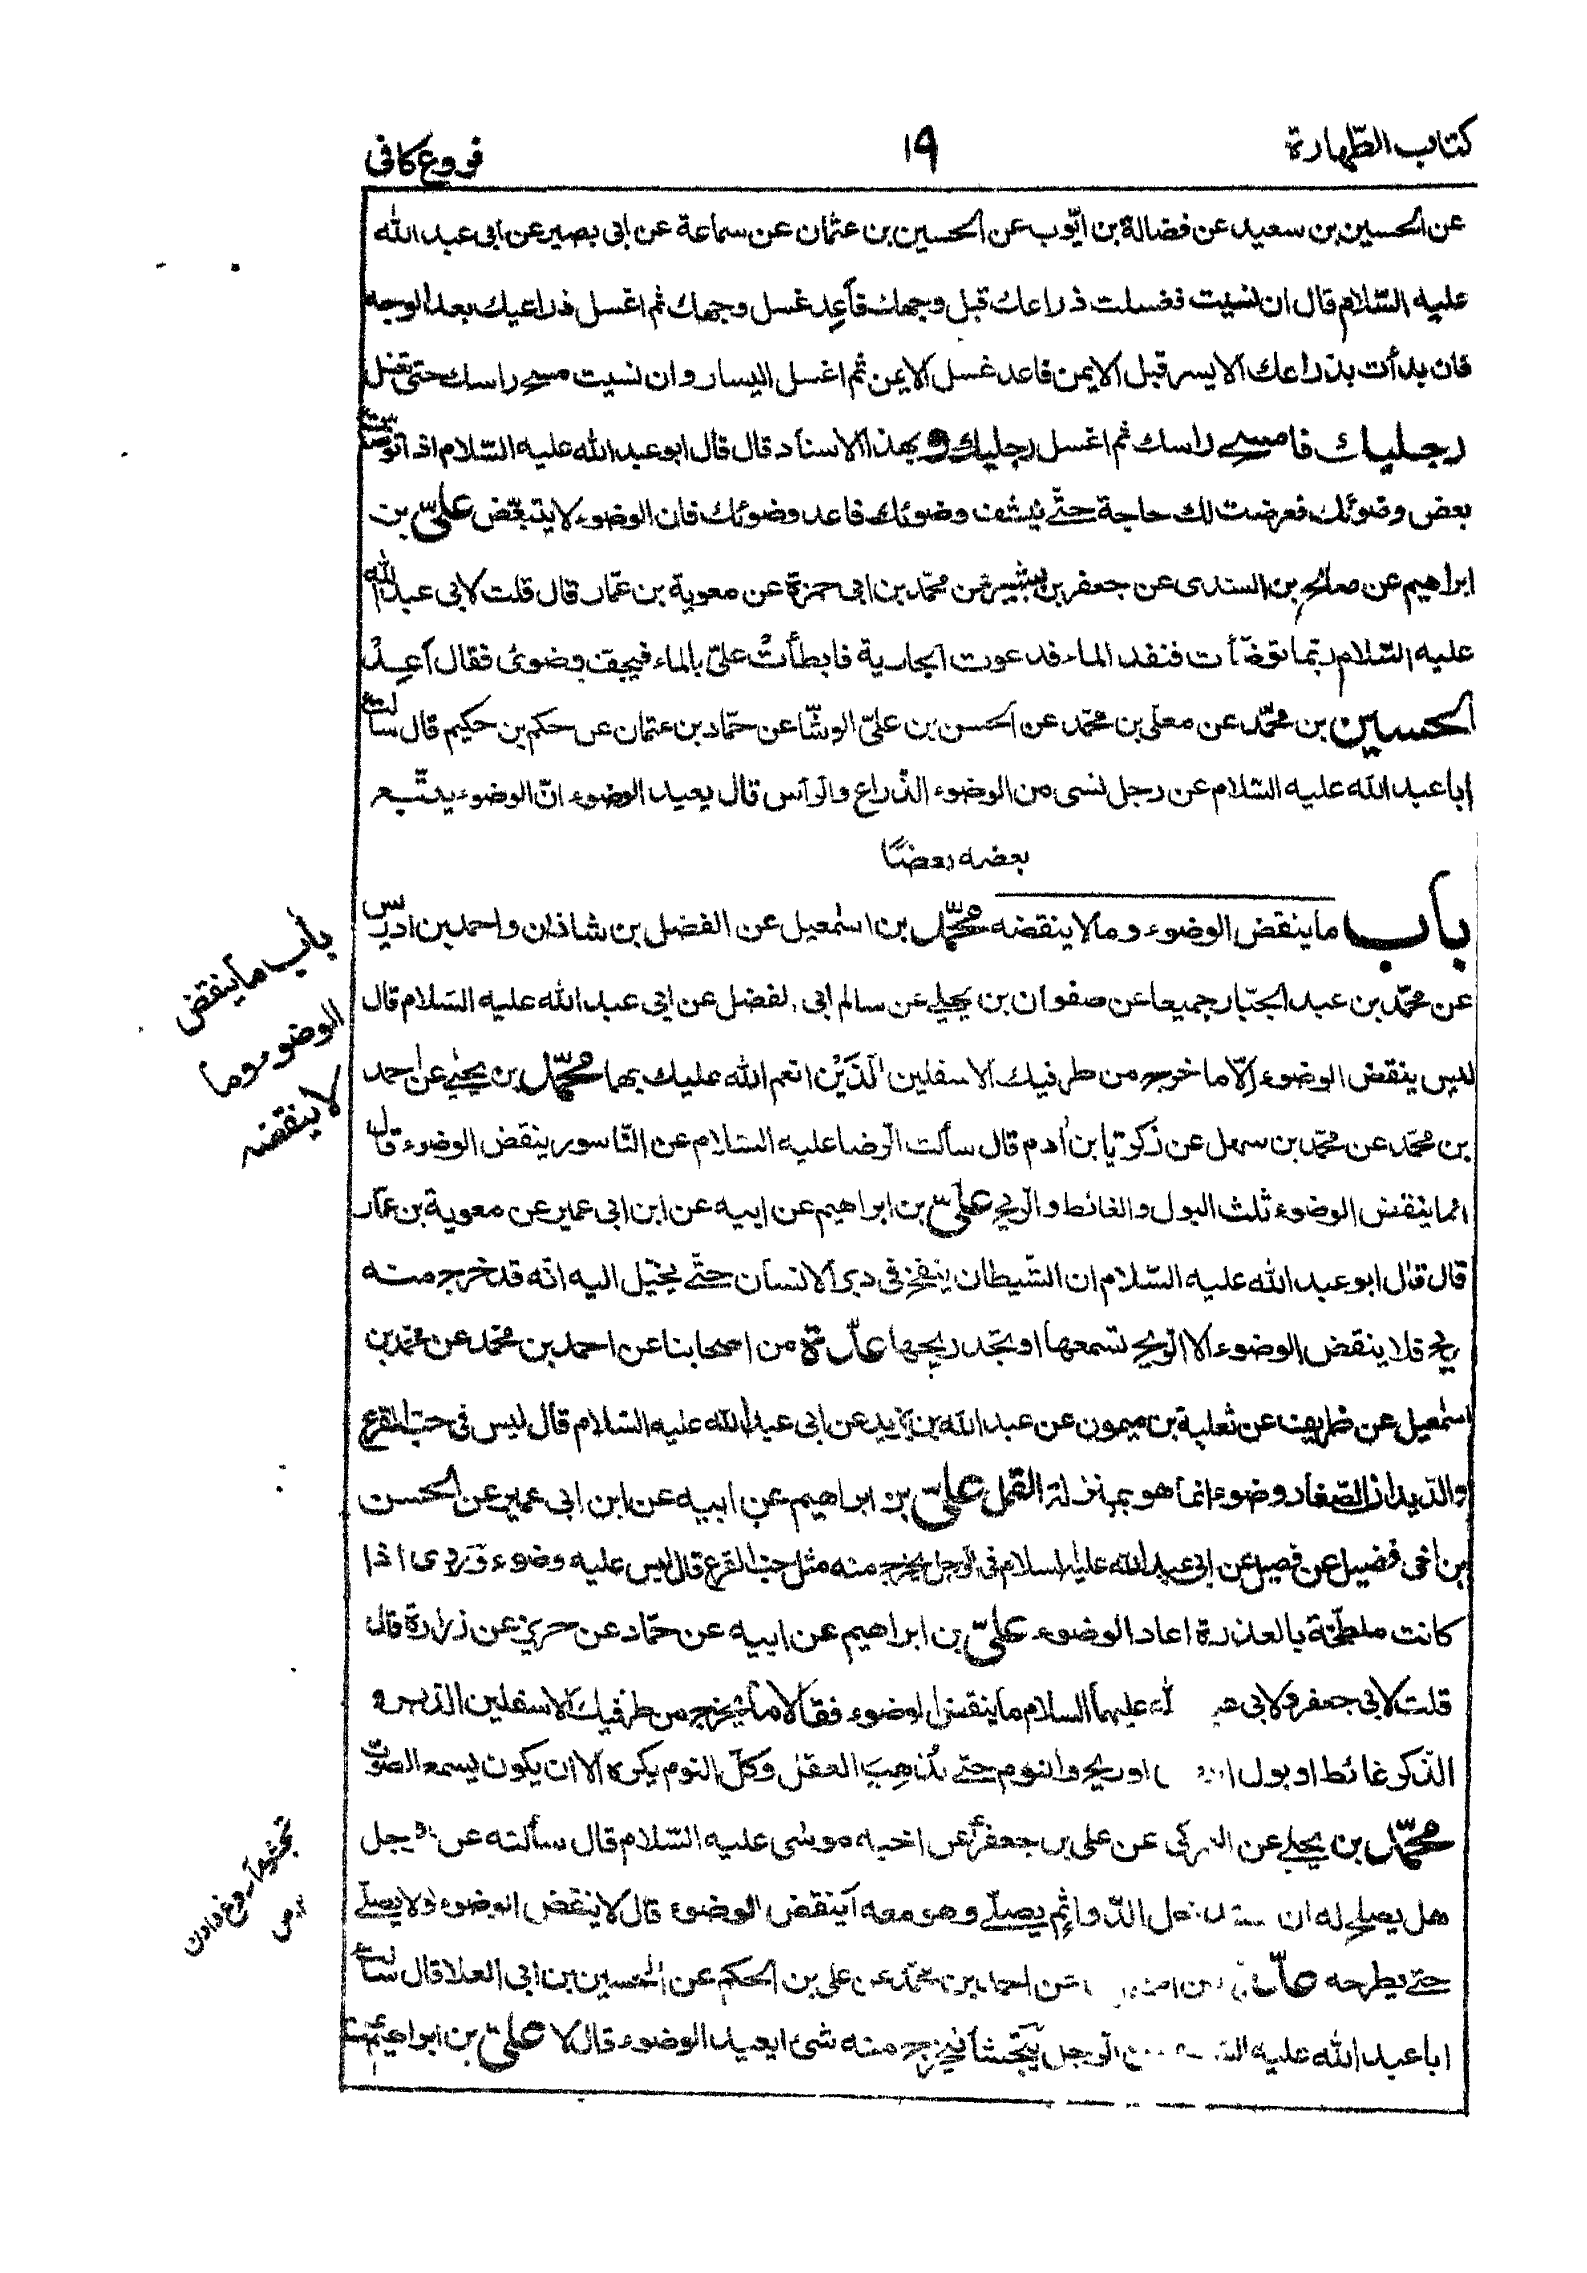 كتاب الطّهارة
١٩
فروع كافى
عن الحسين بن سعيد عن فضالة بن ايّوب عن الحسين بن عثمان عن سماعة عن ابى بصير عن ابى عبد الله
عليه السّلام قال ان نسيت فغسلت ذراعك قبل وجهك فأعِد غسل وجهك ثم اغسل ذراعيك بعد الوجه
فان بدأت بذراعك الايسر قبل الايمن فاعد غسل الايمن ثم اغسل اليسار وان نسيت مسح راسك حتى تغسل
رجليك فامسح راسك ثم اغسل رجليك وبهذا الاسناد قال قال ابو عبد الله عليه السّلام اذا توضّأت
بعض وضوئك فعرضت لك حاجة حتّى ينشف وضوئك فاعد وضوئك فان الوضوء لا يتبعّض علىّ بن
ابراهيم عن صالح بن السندى عن جعفر بن بشير عن محمّد بن ابى حمزة عن معوية بن عمّار قال قلت لابى عبد الله
عليه السّلام ربّما توضّأت فنفد الماء فدعوت الجارية فابطأتْ علىّ بالماء فيجف وضوئى فقال أعِدْ
الحسين بن محمّد عن معلى بن محمّد عن الحسن بن علىّ الوشّا عن حمّاد بن عثمان عن حكم بن حكيم قال سألت
ابا عبد الله عليه السّلام عن رجل نسى من الوضوء الذّراع والرّأس قال يعيد الوضوء انّ الوضوء يتّبع
بعضه بعضًا
باب ما ينقض الوضوء وما لا ينقضه محمّد بن اسمعيل عن الفضل بن شاذان واحمد بن ادريس
عن محمّد بن عبد الجبّار جميعا عن صفوان بن يحيى عن سالم ابى الفضل عن ابى عبد الله عليه السّلام قال
ليس ينقض الوضوء إلّا ما خرج من طرفيك الاسفلين الّذَيْن انعم الله عليك بهما محمّد بن يحيى عن احمد
بن محمّد عن محمّد بن سهل عن زكريّا بن ادم قال سألت الرّضا عليه السّلام عن النّاسور ينقض الوضوء قال
انما ينقض الوضوء ثلث البول والغائط والرّيح علىّ بن ابراهيم عن ابيه عن ابن ابى عمير عن معوية بن عمّار
قال قال ابو عبد الله عليه السّلام ان الشّيطان ينفخ فى دبر الانسان حتّى يخيّل اليه انّه قد خرج منه
ريح فلا ينقض الوضوء الا الرّيح تسمعها او تجد ريحها عدّة من اصحابنا عن احمد بن محمّد عن محمّد بن
اسمعيل عن ظريف عن ثعلبة بن ميمون عن عبد الله بن يزيد عن ابى عبد الله عليه السّلام قال ليس فى حبّ القرع
والدّيدان الصّغار وضوء انّما هو بمنزلة القمل علىّ بن ابراهيم عن ابيه عن ابن ابى عمير عن الحسن
بن اخى فضيل عن فضيل عن ابى عبد الله عليه السلام فى الرّجل يخرج منه مثل حبّ القرع قال ليس عليه وضوء وَرُوى اذا
كانت ملطّخة بالعذرة اعاد الوضوء علىّ بن ابراهيم عن ابيه عن حمّاد عن حريز عن زرارة قال
قلت لابى جعفر ولابى عليهما السلام ما ينقض الوضوء فقالا ما يخرج من طرفيك الاسفلين
الذّكر غائط او بول او ريح والنوم حتّى يُذهِبَ العقل وكلّ النوم يكره الا ان يكون يسمع الصّوت
محمّد بن يحيى عن عن على بن جعفر عن اخيه موسى عليه السّلام قال سألته عن الرّجل
هل يصلح له ان الدّواء ثم يصلّى وهو معه أينقض الوضوء قال لا ينقض الوضوء ولا يصلّى
حتّى يطرحه عدّة عن احمد بن محمّد عن على بن الحكم عن الحسين بن ابى العلا قال سألت
ابا عبد الله عليه عن الرّجل يَتجشأ فيخرج منه شئ ايعيد الوضوء قال لا علىّ بن ابراهيم
باب ما ينقض
الوضوء وما
لا ينقضه